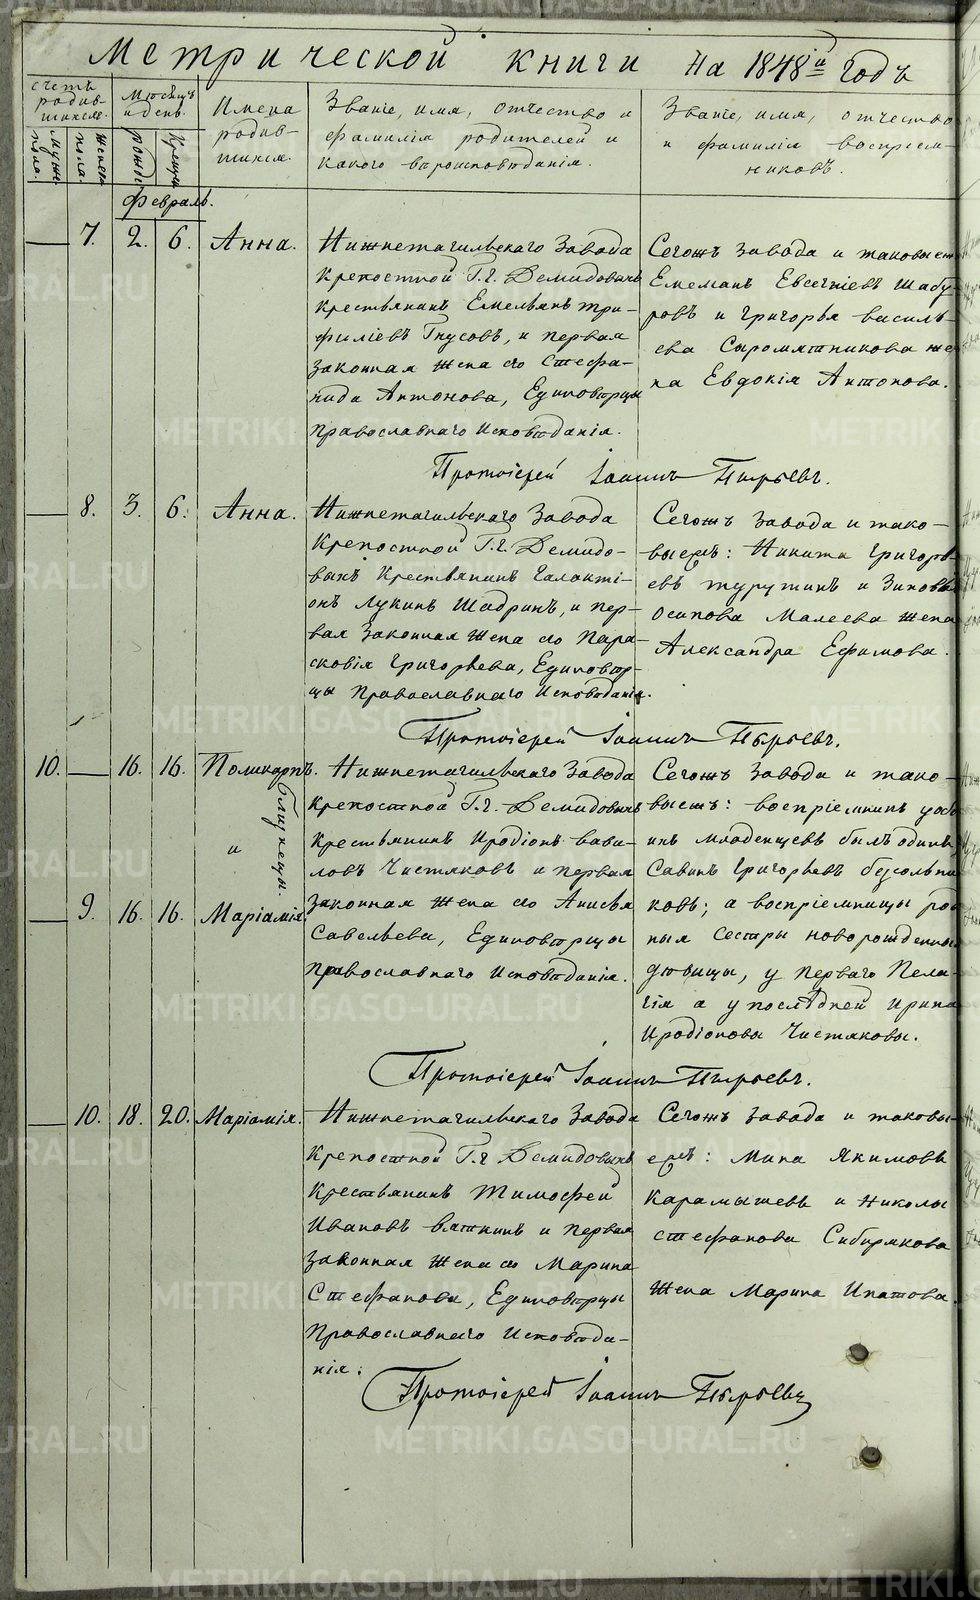 Метрической книги на 1848й годъ
Счетъ родив-шихся.
Мѣсяцъ и день.
Имена родив-шихся.
Званіе, имя, отчество и
фамилія родителей и
какого вѣроисповѣданія.
Званіе, имя, отчество
и фамилія воспріем-
никовъ.
мужс. пола.
женск. пола.
рожд.
крещен.
Февраль.
7. 2. 6. Анна.
Нижнетагильскаго Завода
Крепостной Г.г. Демидовыхъ
Крестьянинъ Емельянъ Три-
филіевъ Гнусовъ, и первая
законная жена его Стефа-
нида Антонова, Единовѣрцы
Православнаго Исповѣданія.
Сегожъ завода и таковые
Емельянъ Евсечніевъ Шабу-
ровъ и Григорья Василь-
ева Сыромятникова же-
на Евдокія Антонова.
Протоіерей Іоаннъ Пырьевъ.
8. 3. 6. Анна.
Нижнетагильскаго Завода
Крепостной Г.г. Демидо-
выхъ Крестьянинъ Галакті-
онъ Лукинъ Шадринъ, и пер-
вая законная жена его Пара-
сковія Григорьева, Единовѣр-
цы Православнаго Исповѣданія.
Сегожъ завода и тако-
выежъ: Никита Григорь-
евъ Турутинъ и Зиновья
Осипова Малеева жена
Александра Ефимова.
Протоіерей Іоаннъ Пырьевъ.
10. 16. 16. Поликарпъ.
и
близнецы.
9. 16. 16. Маріамія
Нижнетагильскаго Завода
Крепостной Г.г. Демидовыхъ
Крестьянинъ Иродіонъ Вави-
ловъ Чистяковъ и первая
законная жена его Анисья
Савельева, Единовѣрцы
Православнаго Исповѣданія.
Сегожъ завода и тако-
выежъ: воспріемникъ у
ихъ младенцевъ былъ одинъ
Савинъ Григорьевъ
ковъ; а воспріемницы род
ныя сестры новорожденных
дѣвицы, у перваго Пела-
гія а у послѣдней Ирина
Иродіоновы Чистяковы.
Протоіерей Іоаннъ Пырьевъ.
10. 18. 20. Маріамія.
Нижнетагильскаго Завода
Крепостной Г.г. Демидовыхъ
Крестьянинъ Тимофей
Ивановъ Вяткинъ и первая
законная жена его Марина
Стефанова, Единовѣрцы
Православнаго Исповѣда-
нія:
Сегожъ завода и таковы-
ежъ: Мина Якимовъ
Карамышевъ и Николы
Стефанова Сибирякова
жена Марина Ипатова.
Протоіерей Іоаннъ Пырьевъ
METRIKI.GASO-URAL.RU